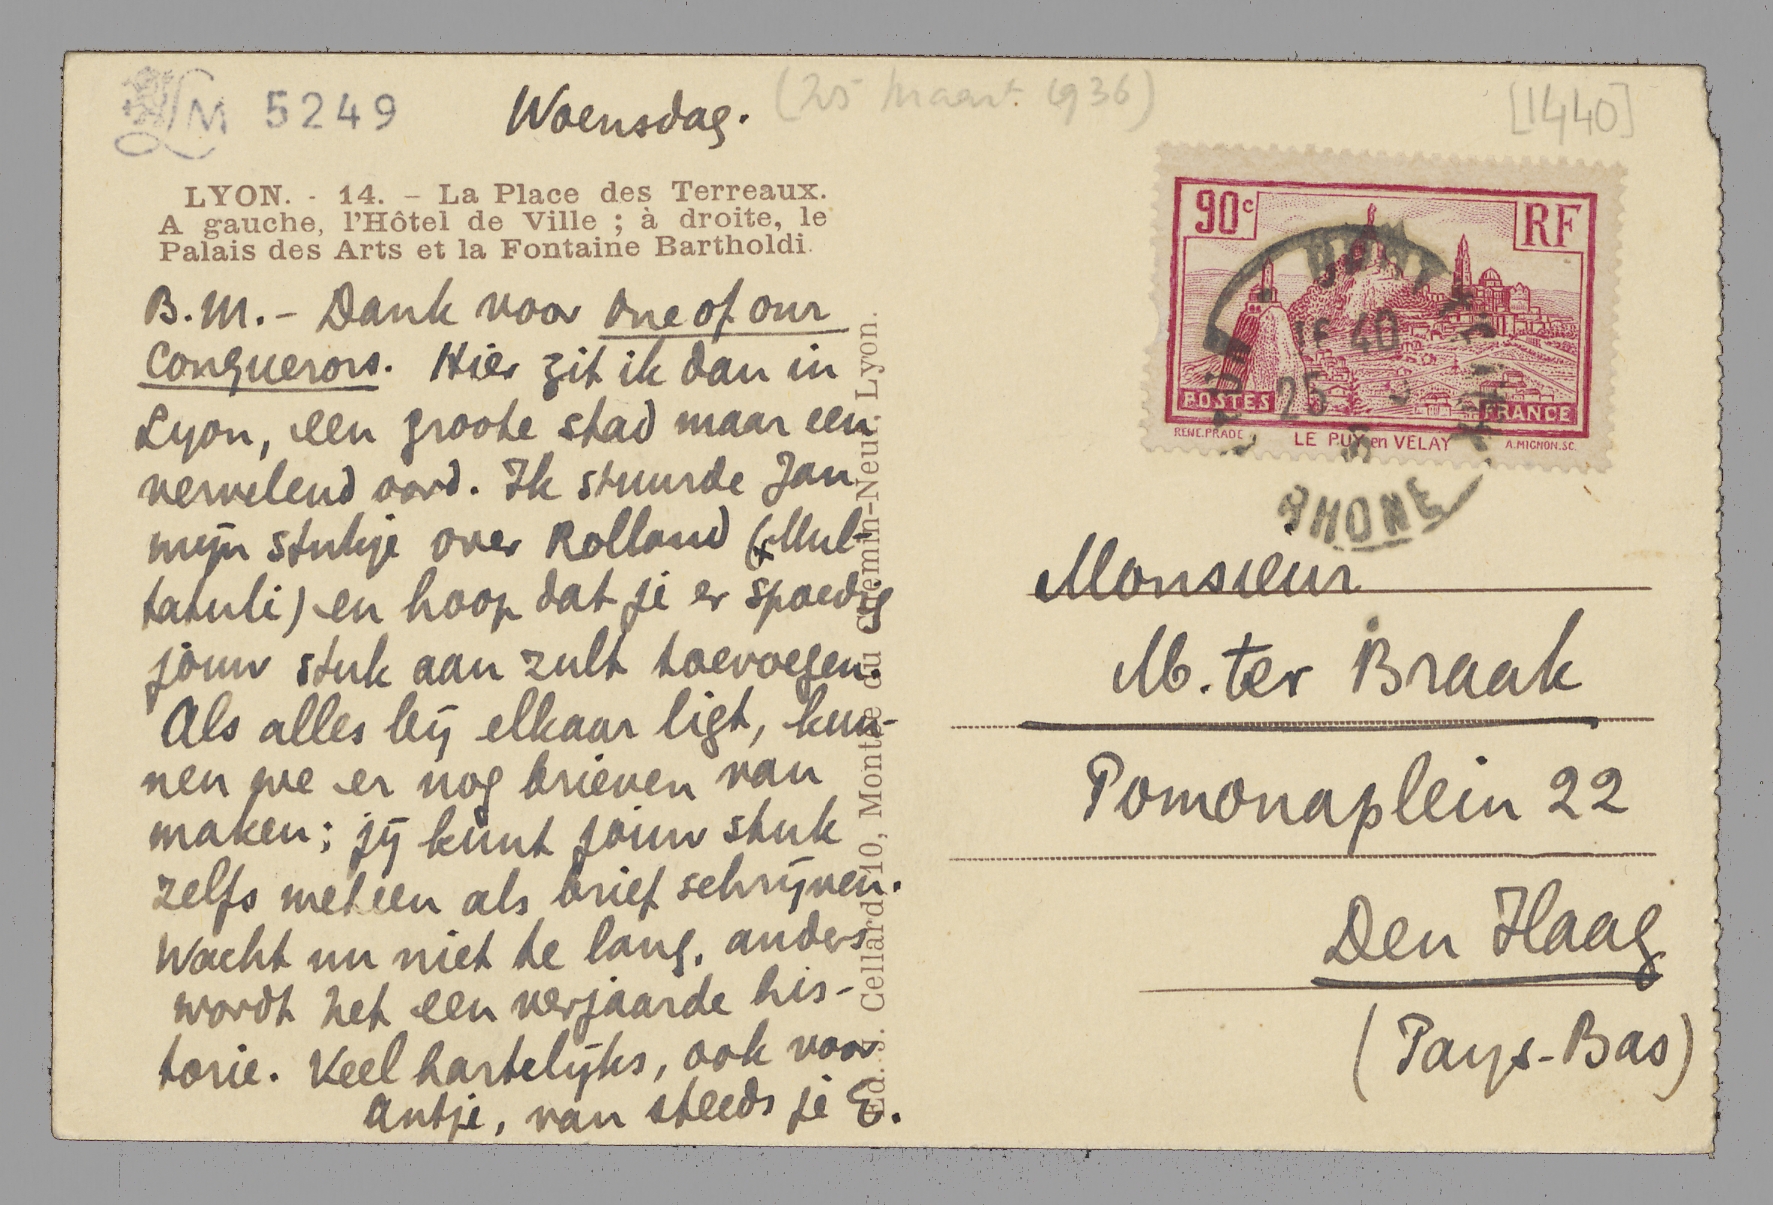 LM 5249
Woensdag.
(25 maart 1936)
[1440]
LYON. - 14. - La Place des Terreaux.
A gauche, l'Hôtel de Ville ; à droite, le
Palais des Arts et la Fontaine Bartholdi.
B.M. - Dank voor one of our
Conquerors. Hier zit ik dan in
Lyon, een groote stad maar een
vervelend oord. Ik stuurde Jan
mijn stukje over Rolland (× Mul-
tatuli) en hoop dat je er spoedig
jouw stuk aan zult toevoegen.
Als alles bij elkaar ligt, kun-
nen we er nog brieven van
maken; jij kunt jouw stuk
zelfs meteen als brief schrijven.
Wacht nu niet te lang, anders
wordt het een verjaarde his-
torie. Veel hartelijks, ook voor
Antje, van steeds je E.
Ed. J. Cellard, 10, Montée du Chemin-Neuf, Lyon.
90c RF
POSTES FRANCE
RENE.PRADE LE PUY en VELAY A.MIGNON.SC.
40
25
RHONE
Monsieur
M. ter Braak
Pomonaplein 22
Den Haag
(Pays-Bas)